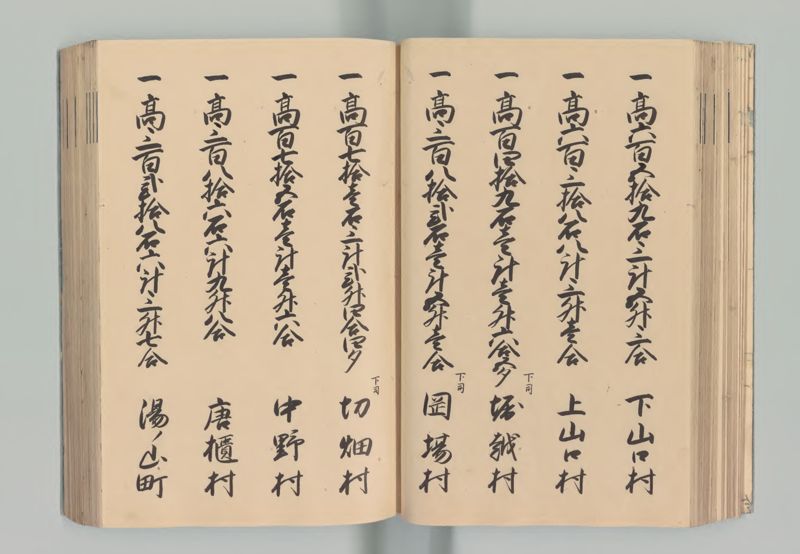 一高六百五拾九石三斗五升三合 下山口村
一高六百三拾八石八斗三升壱合 上山口村
一高百四拾九石壱斗壱升六合五夕 下司 堀越村
一高三百八拾弐石壱斗五升壱合 下司 岡場村
一高百七拾壱石三斗弐升四合四夕 切畑村
一高百七拾五石壱斗壱升六合 中野村
一高三百八拾六石六斗九升八合 唐櫃村
一高三百弐拾八石六斗三升七合 湯ノ山町